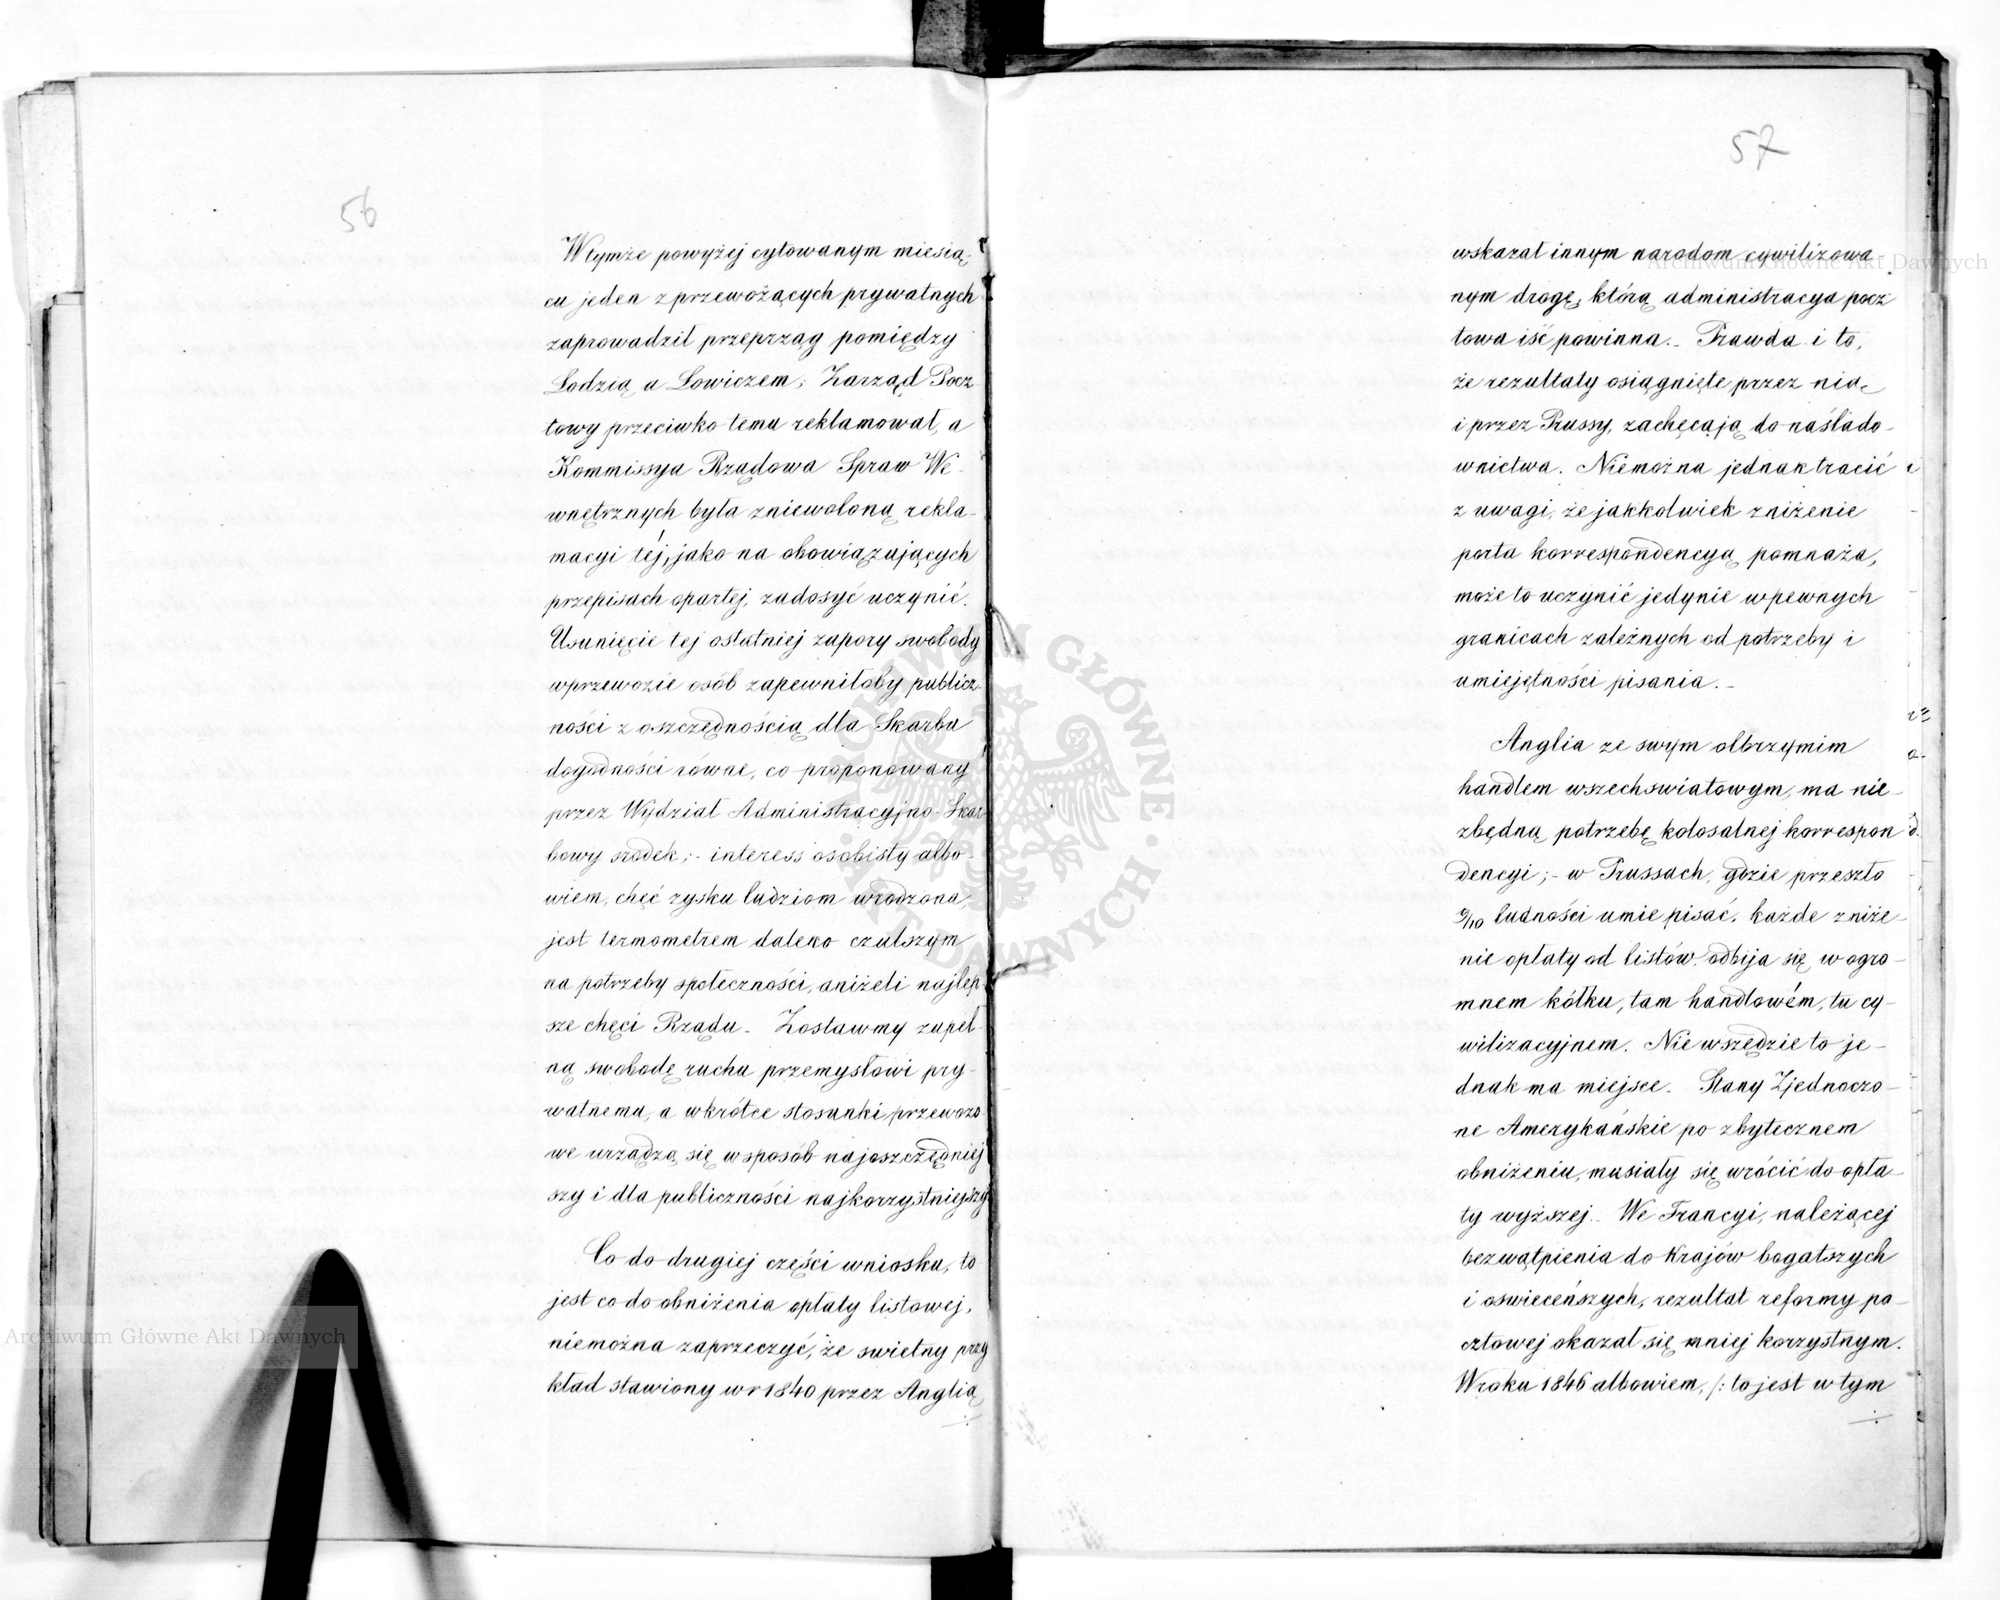 56
Wtymże powyżej cytowanym miesią-
cu jeden z przewożących prywatnych
zaprowadził przeprząg pomiędzy
Łodzią a Łowiczem; Zarząd Pocz
towy przeciwko temu reklamował, a
Kommissya Rządowa Spraw We-
wnętrznych była zniewoloną rekla-
macyi téj, jako na obowiązujących
przepisach opartej, zadosyć uczynić.
Usunięcie tej ostatniej zapory swobody
wprzewozie osób zapewniłoby publicz-
ności z oszczędnością dla Skarbu
dogodności równe, co proponowany
przez Wydział Administracyjno-Skar
bowy srodek;- interess osobisty albo-
wiem, chęć zysku ludziom wrodzona,
jest termometrem daleko czulszym
na potrzeby społeczności, aniżeli najlep-
sze chęci Rządu. Zostawmy zupeł-
ną swobodę ruchu przemysłowi pry-
watnemu, a wkrótce stosunki przewozo
we urządzą się wsposób najoszczędniej
szy i dla publiczności najkorzystniejszy
Co do drugiej części wniosku, to
jest co do obniżenia opłaty listowej,
niemożna zaprzeczyć, że swietny przy
kład stawiony w r 1840 przez Anglią,
57
wskazał innym narodom cywilizowa-
nym drogę, którą administracya pocz
towa iść powinna.- Prawda i to,
że rezultaty osiągnięte przez nią
i przez Prussy, zachęcają do naślado-
wnictwa. Niemożna jednak tracić
z uwagi, że jakkolwiek zniżenie
porta korrespondencyą pomnaża,
może to uczynić jedynie wpewnych
granicach zależnych od potrzeby i
umiejętności pisania.-
Anglia ze swym olbrzymim
handlem wszechswiatowym, ma nie-
zbędną potrzebę kolosalnej korrespon
dencyi;- w Prussach, gdzie przeszło
9/10 ludności umie pisać, każde zniże-
nie opłaty od listów odbija się w ogro-
mnem kółku, tam handlowém, tu cy-
wilizacyjnem. Nie wszędzie to je-
dnak ma miejsce. Stany Zjednoczo-
ne Amerykańskie po zbytecznem
obniżeniu, musiały się wrócić do opła-
ty wyższej. We Francyi, należącej
bezwątpienia do Krajów bogatszych
i oswieceńszych, rezultat reformy po-
cztowej okazał się mniej korzystnym.
Wroku 1846 albowiem, /: to jest w tym
Archiwum Główne Akt Dawnych
Archiwum Główne Akt Dawnych
ARCHIWUM GŁÓWNE · AKT DAWNYCH ·